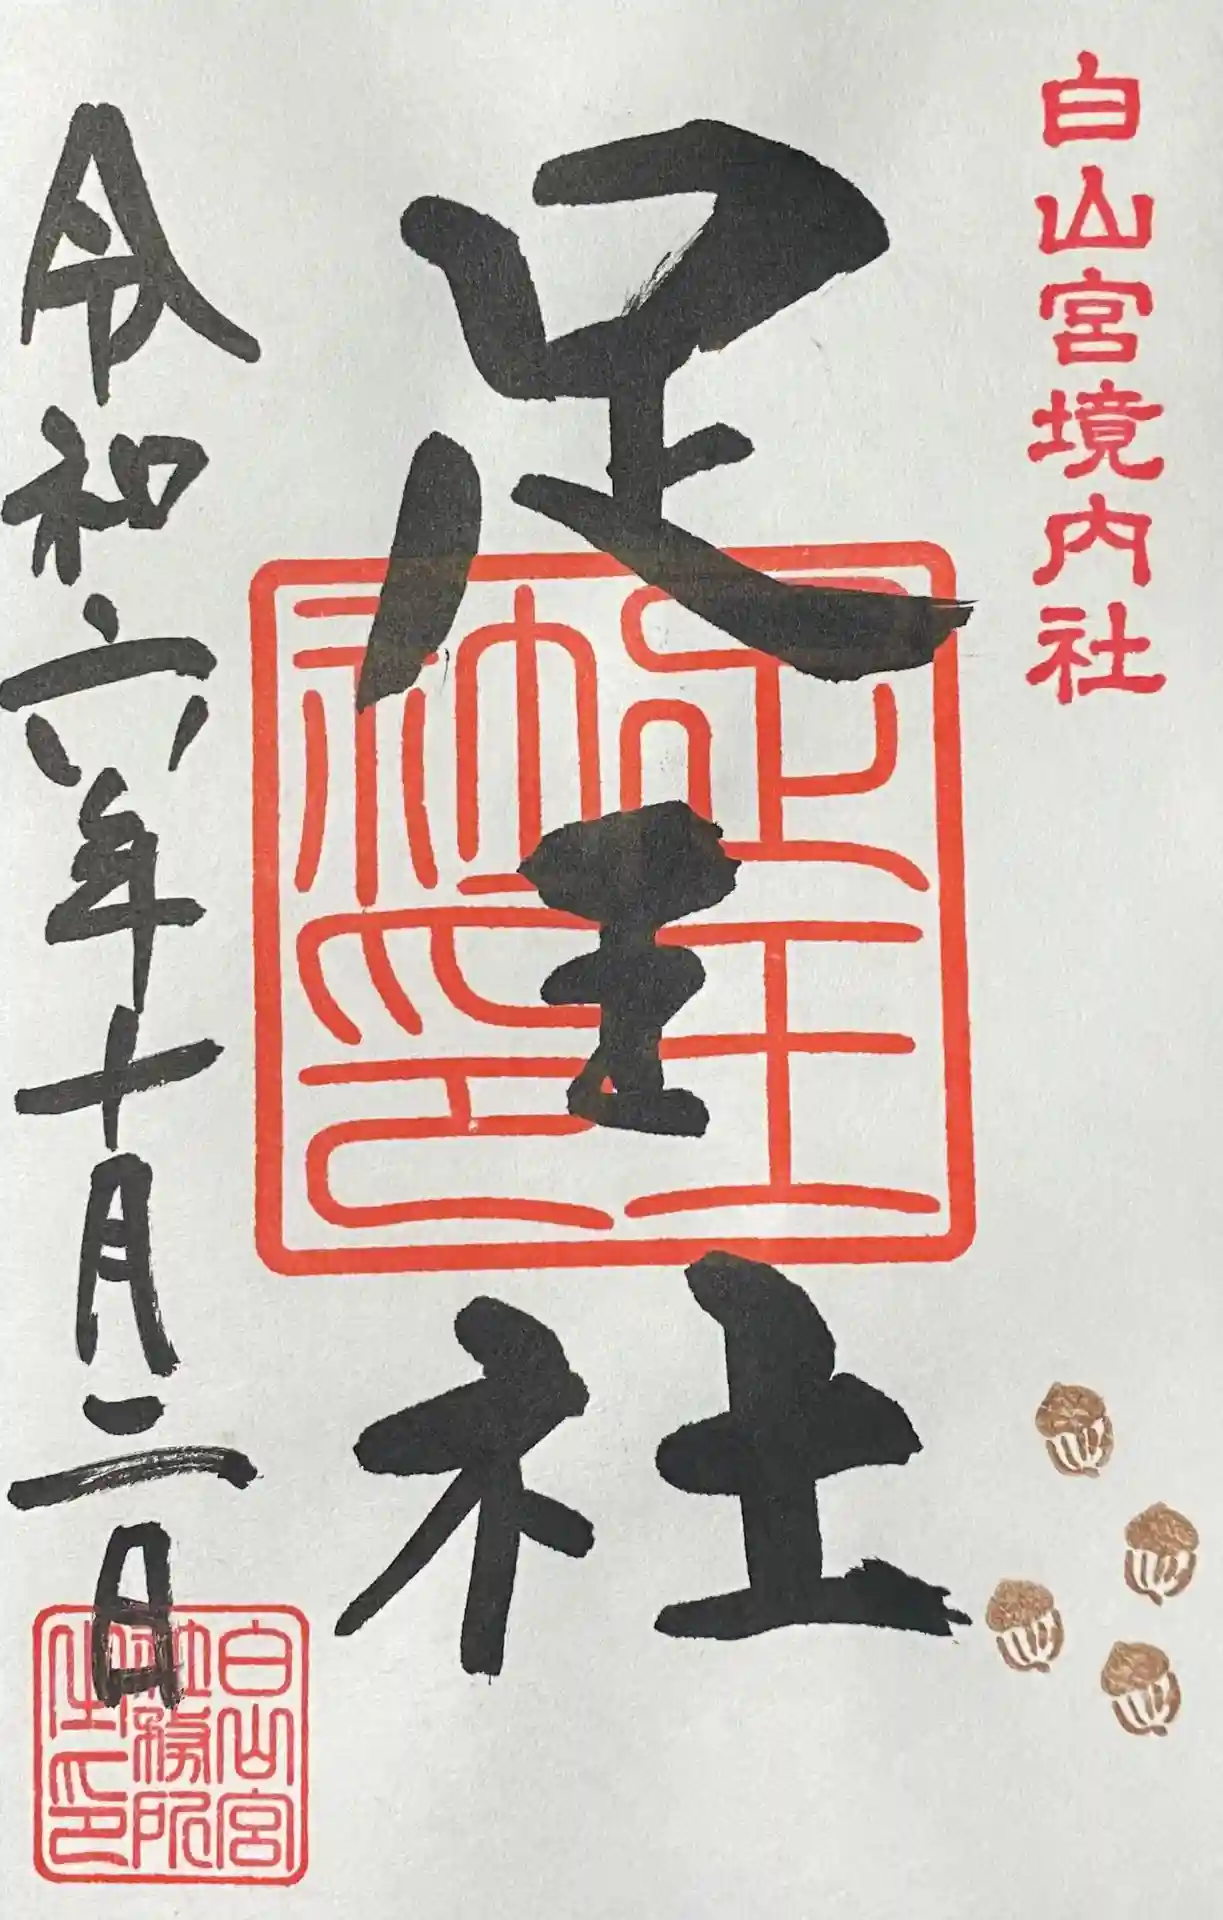 白山宮境内社
足王社
足王社印
令和六年十月二日
白山宮
社務所
之印